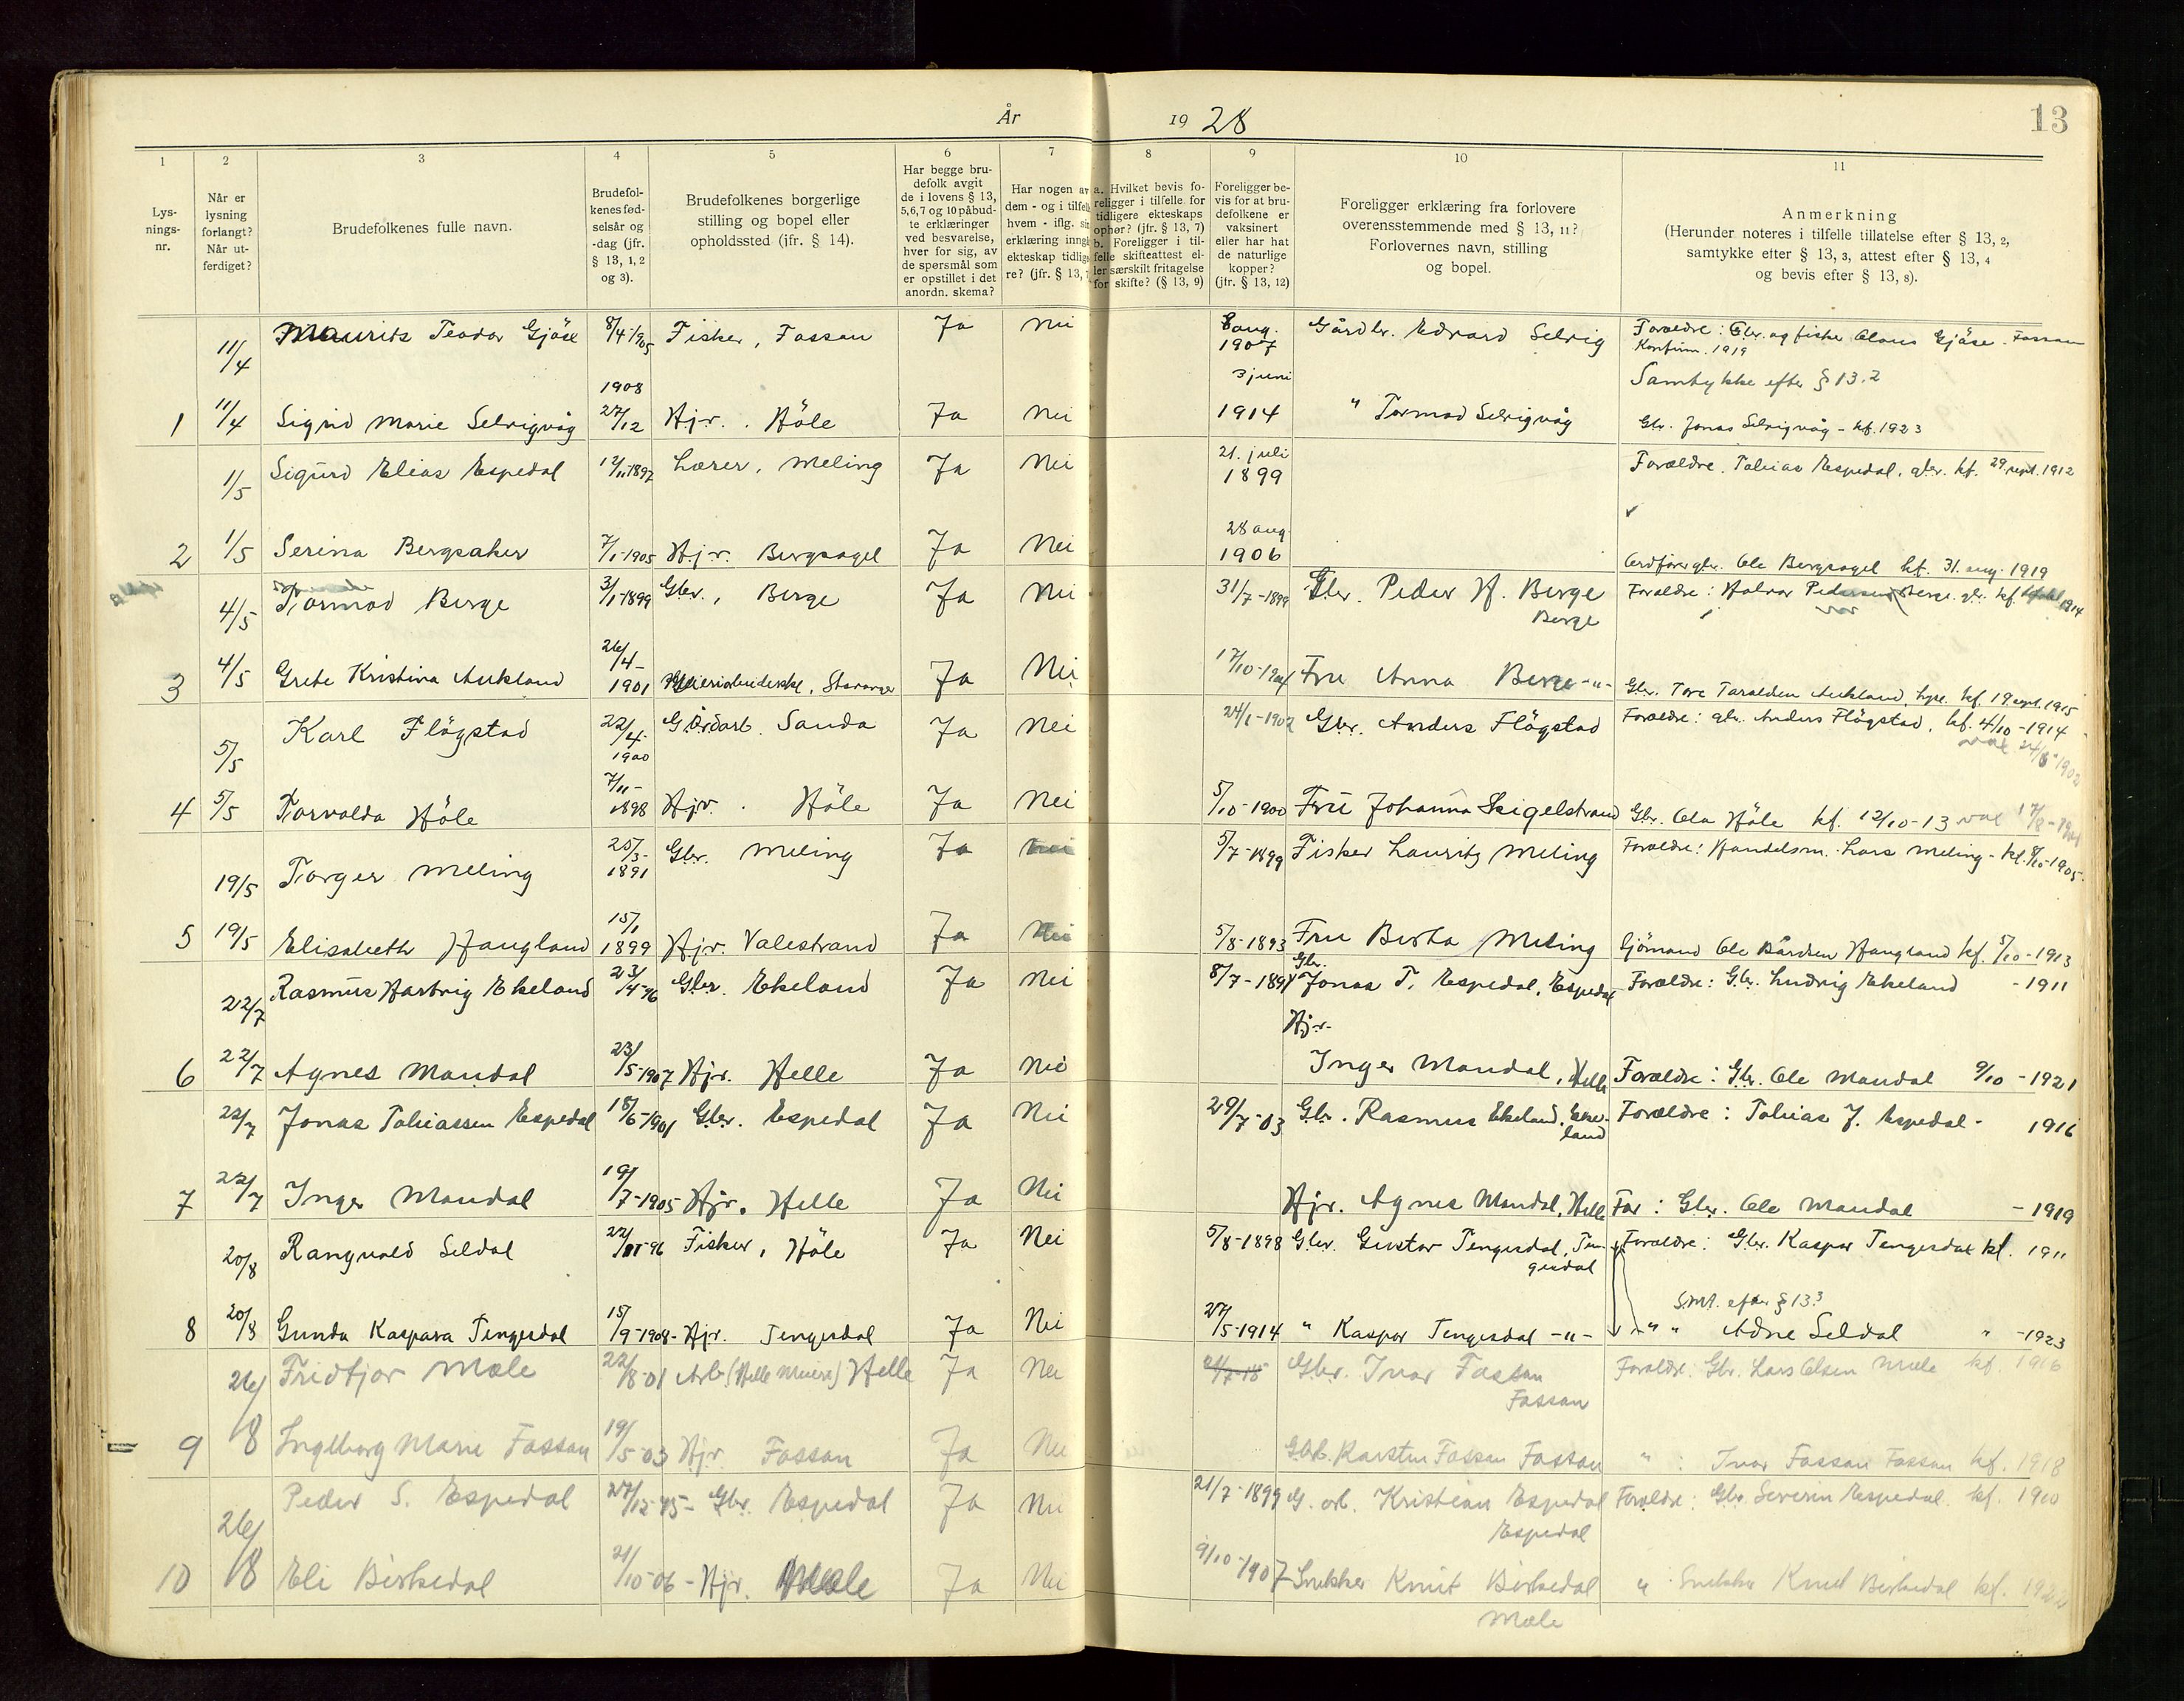 År 19 28
13
1
2
3
4
5
6
7
8
9
10
11
Lys-
nings-
nr.
Når er
lysning
forlangt?
Når ut-
ferdiget?
Brudefolkenes fulle navn.
Brudefol-
kenes fød-
selsår og
-dag (jfr.
§ 13, 1, 2
og 3).
Brudefolkenes borgerlige
stilling og bopel eller
opholdssted (jfr. § 14).
Har begge bru-
defolk avgit
de i lovens § 13,
5,6,7 og 10 påbud-
te erklæringer
ved besvarelse,
hver for sig, av
de spørsmål som
er opstillet i det
anordn. skema?
Har nogen av
dem - og i tilfelle
hvem - iflg. sin
erklæring inngå
ekteskap tidlig
re? (jfr. § 13, 7
a. Hvilket bevis fo-
religger i tilfelle for
tidligere ekteskaps
ophør? (jfr. § 13, 7)
b. Foreligger i til-
felle skifteattest el-
ler særskilt fritagelse
for skifte? (§ 13, 9)
Foreligger be-
vis for at bru-
defolkene er
vaksinert
eller har hat
de naturlige
kopper?
(jfr. § 13, 12)
Foreligger erklæring fra forlovere
overensstemmende med § 13, 11?
Forlovernes navn, stilling
og bopel.
Anmerkning
(Herunder noteres i tilfelle tillatelse efter § 13, 2,
samtykke efter § 13, 3, attest efter § 13, 4
og bevis efter § 13, 8).
11/4 Maurits Teodor Gjöse 8/4-1905 Fisker, Fossan Ja Nei 8 aug. 1907 Gårdbr. Edvard Selvig Foreldre: Gbr. og fisker Claus Gjöse. Fossan
Konfirm. 1919
Samtykke efter § 13.2
1 11/4 Sigrid Marie Selvigvåg 1908 27/12 Hjv. Höle Ja Nei 3 juni 1914 " Tormod Selvigvåg Gbr. Jonas Selvigvåg - kf. 1923
1/5 Sigurd Elias Espedal 12/11-1897 Lærer, Meling Ja Nei 21. juli 1899 Foreldre. Tobias Espedal, gbr. kf. 29. sept. 1912
2 1/5 Serina Bergsaker 7/1-1905 Hjv. Bergsagel Ja Nei 28 aug. 1906 Ordfører gbr. Ole Bergsagel kf. 31. aug. 1919
4/5 Tormod Berge 3/1-1899 Gbr., Berge Ja Nei 31/7-1899 Gbr. Peder H. Berge Foreldre: Halvor Pedersen Berge. gbr. kf. 1914
Berge
3 4/5 Grete Kristina Aukland 26/4-1901 Stavanger Ja Nei 17/10-1901 Fru Anna Berge -"- Gbr. Tore Taraldsen Aukland, kf. 19 sept. 1915
5/5 Karl Flögstad 22/4-1900 Gårdarb. Sanda Ja Nei 24/1-1902 Gbr. Anders Flögstad Foreldre: gbr. Anders Flögstad, kf. 4/10-1914
4 5/5 Torvalda Höle 7/11-1898 Hjv. Höle Ja Nei 5/10-1900 Fru Johanna Skigelstrand Gbr. Ola Höle kf. 12/10-13
19/5 Torger Meling 25/3-1891 Gbr. Meling Ja Nei 5/7-1899 Fisker Lauritz Meling Foreldre: Handelsm. Lars Meling - kf. 8/10-1905.
5 19/5 Elisabeth Haugland 15/1 1899 Hjv. Valestrand Ja Nei 5/8-1893 Fru Berta Meling Sjömand Ole Bårdsen Haugland kf. 5/10-1913
22/7 Rasmus Hartvig Ekeland 23/4-96 Gbr. Ekeland Ja Nei 8/7-1897 Gbr. Jonas T. Espedal, Espedal Foreldre: Gbr. Ludvig Ekeland - 1911
6 22/7 Agnes Mandal 23/5-1907 Hjv. Helle Ja Nei Hjv. Inger Mandal, Helle Foreldre: Gbr. Ole Mandal 9/10-1921
22/7 Jonas Tobiassen Espedal 18/6-1901 Gbr. Espedal Ja Nei 29/7-03 Gbr. Rasmus Ekeland, Eke-
land Foreldre: Tobias J. Espedal - 1916
7 22/7 Inger Mandal 19/7-1905 Hjv. Helle Ja Nei Hjv. Agnes Mandal, Helle For: Gbr. Ole Mandal - 1919
20/8 Rangvald Seldal 22/11-96 Fisker, Höle Ja Nei 5/8-1898 Gbr. Gustav Tengesdal, Ten-
gesdal Foreldre: Gbr. Kaspar Tengesdal kf. 1911
Smt. efter § 13.3
8 20/8 Gunda Kaspara Tengesdal 15/9-1908- Hjv. Tengesdal Ja Nei 27/5-1914 " Kaspar Tengesdal -"- " " Adne Seldal " -1923
26/8 Fridtjov Mæle 22/8-01 Arb. (Helle Meieri) Helle Ja Nei Gbr. Ivar Fossan
Fossan Foreldre: Gbr. Lars Olsen Mæle kf. 1916
9 Ingeborg Marie Fossan 19/5-03 Hjv. Fossan Ja Nei Karsten Fossan Fossan " : Ivar Fossan Fossan kf. 1918
26/8 Peder S. Espedal 27/12-95- Gbr. Espedal Ja Nei 21/7-1899 G. arb. Kristian Espedal
Espedal Foreldre: Gbr. Severin Espedal. kf. 1910
10 Eli Birkedal 21/10-06- Hjv. Mæle Ja Nei 9/10-1907 Snekker Knut Birkedal
Mæle " : Snekker Knut Birkedal kf.